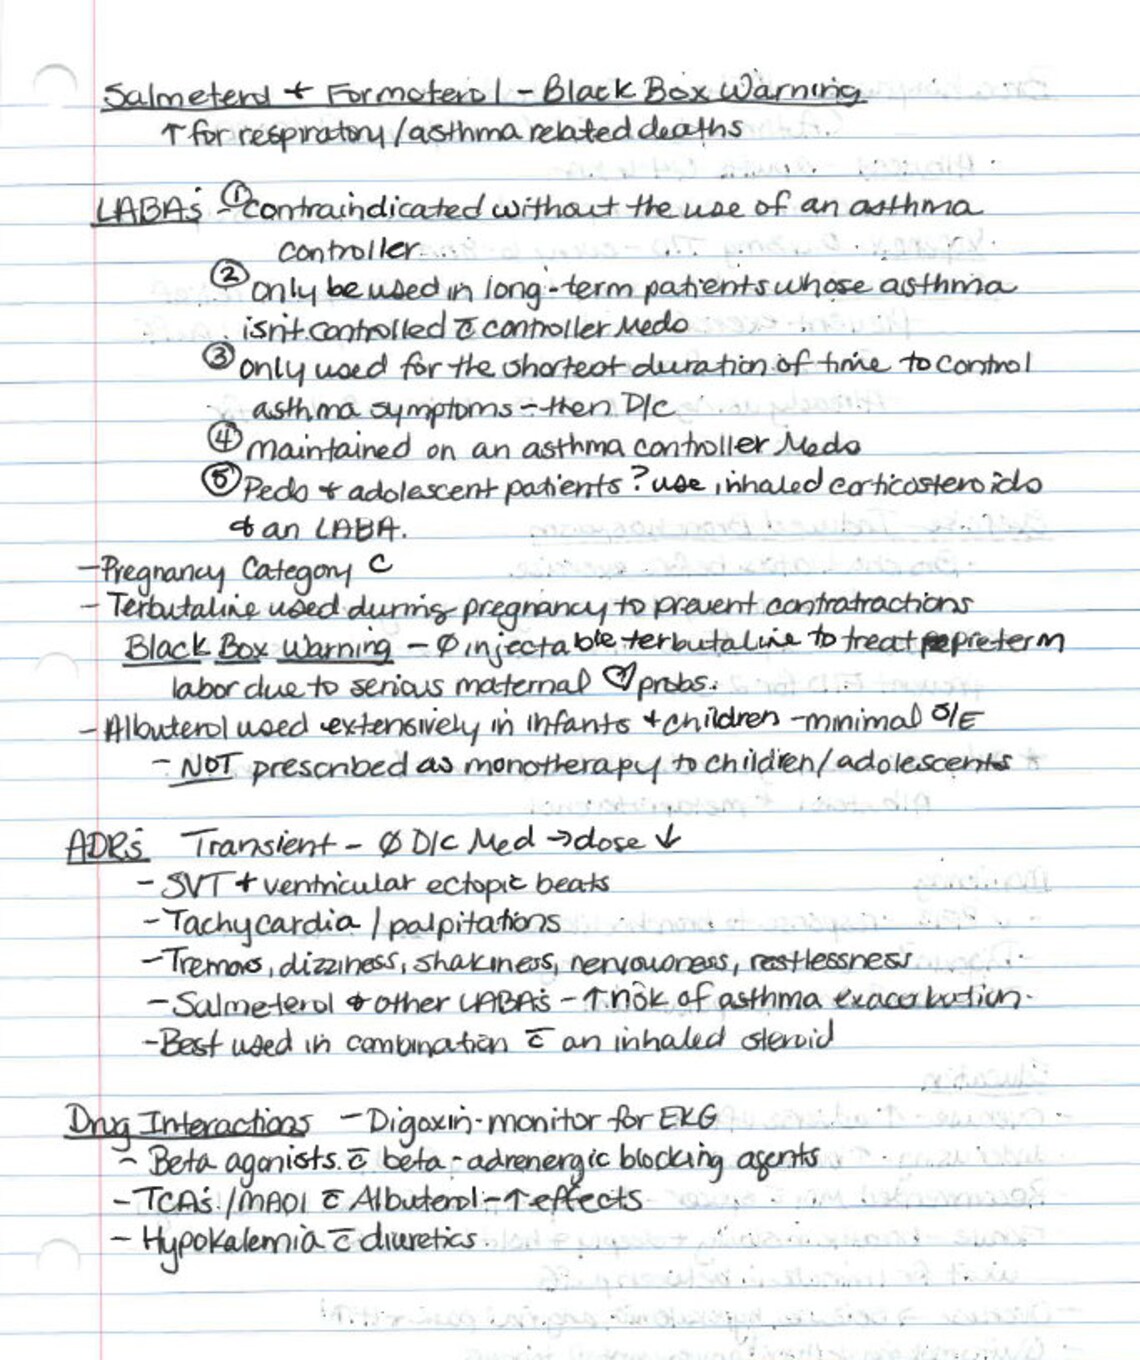 Salmeterol + Formoterol - Black Box Warning
↑ for respiratory/asthma related deaths
LABAs - ① contraindicated without the use of an asthma
controller
② only be used in long-term patients whose asthma
isn't controlled c̄ controller Meds
③ only used for the shortest duration of time to control
asthma symptoms - then D/c
④ Maintained on an asthma controller Meds
⑤ Peds + adolescent patients? use inhaled corticosteroids
+ an LABA.
- Pregnancy Category C
- Terbutaline used during pregnancy to prevent contratractions
Black Box Warning - ∅ injectable terbutaline to treat preterm
labor due to serious maternal ♡ probs.
- Albuterol used extensively in infants + children - minimal S/E
- NOT prescribed as monotherapy to children/adolescents
ADRs Transient - ∅ D/c Med → dose ↓
- SVT + ventricular ectopic beats
- Tachycardia / palpitations
- Tremors, dizziness, shakiness, nervousness, restlessness
- Salmeterol + other LABAs - ↑ risk of asthma exacerbation.
- Best used in combination c̄ an inhaled steroid
Drug Interactions - Digoxin - monitor for EKG
- Beta agonists c̄ beta-adrenergic blocking agents
- TCAs / MAOI c̄ Albuterol - ↑ effects
- Hypokalemia c̄ diuretics